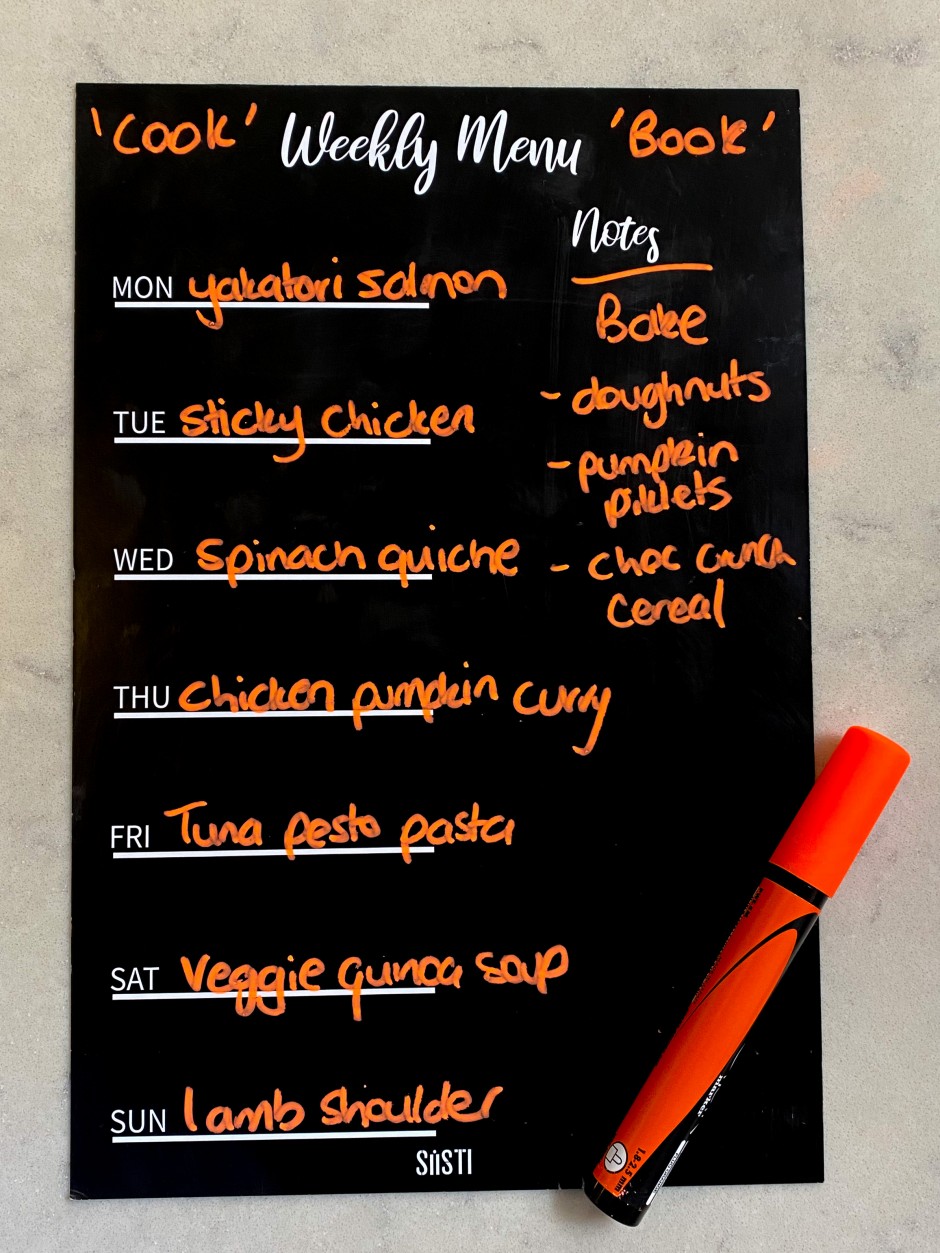 'Cook' Weekly Menu 'Book'
Notes
MON yakatori salmon
Bake
TUE sticky chicken
- doughnuts
- pumpkin
piklets
WED spinach quiche
- choc crunch
cereal
THU chicken pumpkin curry
FRI Tuna pesto pasta
SAT Veggie quinoa soup
SUN lamb shoulder
SüSTI
marker
1.8-2.5 mm